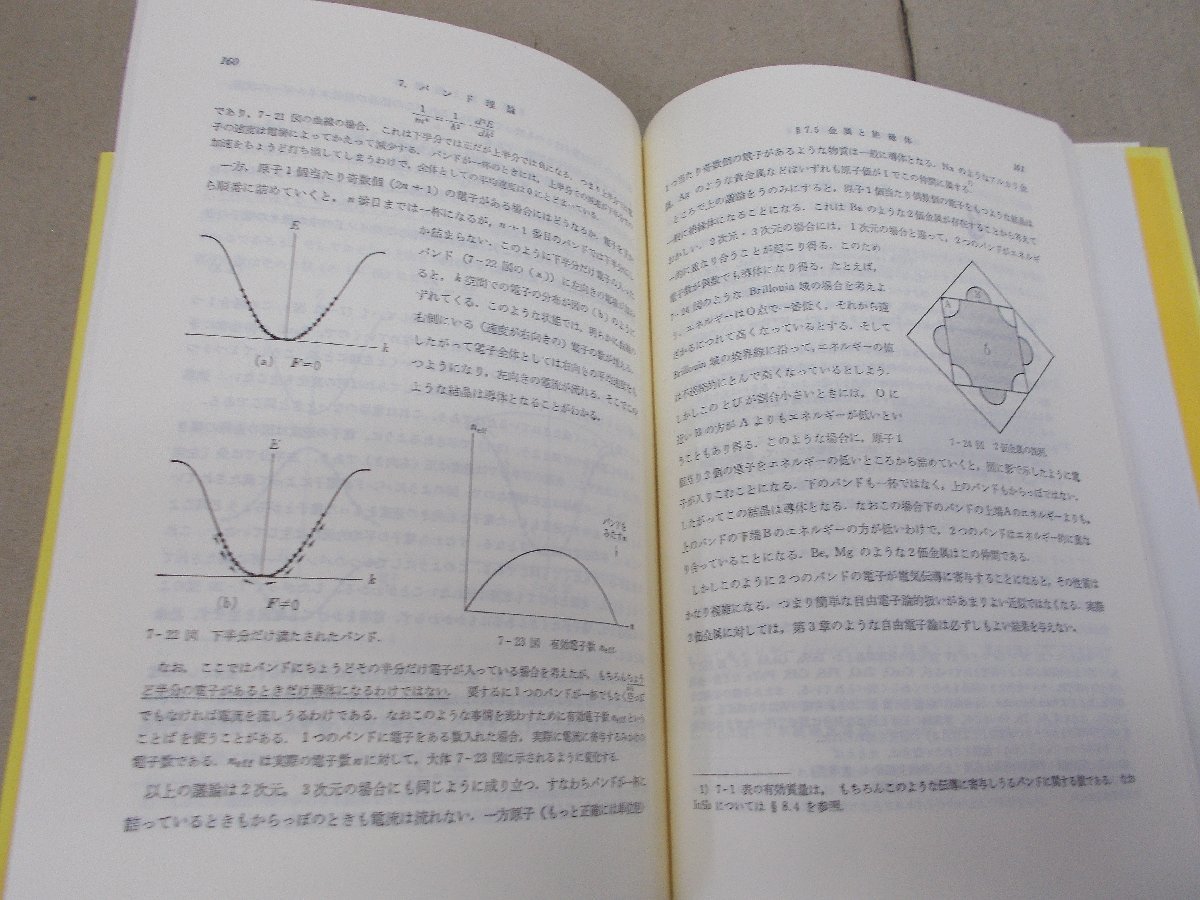 160
7. バンド理論
1/m* = 1/ℏ² · d²E/dk²
であり，7-21 図の曲線の場合，これは下半分では正だが上半分では負になる．つまり上半分の電
子の速度は電場によってかえって減少する．バンドが一杯のときには，上半分の減速が下半分の
加速をちょうど打ち消してしまうわけで，全体としての平均速度は0にとどまっている．
一方，原子1個当たり奇数個 (2n+1) の電子がある場合にはどうなるか．電子を下か
ら順番に詰めていくと，n 番目までは一杯になるが，n+1 番目のバンドでは下半分にし
か詰まらない．このように下半分だけ電子の入った
バンド (7-22 図の (a)) に左向きの電場が掛かる
ると，k 空間での電子の分布が図の (b) のように
ずれてくる．このような状態では，明らかに
右側にいる (速度が右向きの) 電子の数が増える．
したがって電子全体としては右向きの平均速度をも
つようになり，左向きの電流が流れる．そこでこの
ような結晶は導体となることがわかる．
E
k
(a) F=0
E
k
(b) F≠0
7-22 図 下半分だけ満たされたバンド．
neff
バンドを
みたすn
n
7-23 図 有効電子数 neff.
なお，ここではバンドにちょうどその半分だけ電子が入っている場合を考えたが，もちろんちょう
ど半分の電子があるときだけ導体になるわけではない．要するに1つのバンドが一杯でもなくからっぽ
でもなければ電流を流しうるわけである．なおこのような事情を表わすために有効電子数 neff という
ことばを使うことがある．1つのバンドに電子をある数入れた場合，実際に電流に寄与するみかけの
電子数である．neff は実際の電子数 n に対して，大体 7-23 図に示されるように変化する．
以上の議論は2次元，3次元の場合にも同じように成り立つ．すなわちバンドが一杯に
詰っているときもからっぽのときも電流は流れない．一方原子 (もっと正確には単位胞)
§7.5 金属と絶縁体
161
1つ当たり奇数個の電子があるような物質は一般に導体となる．Na のようなアルカリ金
属，Ag のような貴金属などはいずれも原子価が1でこの仲間に属する．1)
ところで上の議論をうのみにすると，原子1個当たり偶数個の電子をもつような結晶は
一般に絶縁体になることになる．これは Be のような2価金属が存在することから考えて
おかしい．2次元・3次元の場合には，1次元の場合と違って，2つのバンドがエネルギ
一的に重なり合うことが起こり得る．このため
電子数が偶数でも導体になり得る．たとえば，
7-24 図のような Brillouin 域の場合を考えよ
う．エネルギーはO点で一番低く，それから遠
ざかるにつれて高くなっているとする．そして
Brillouin 域の境界線に沿って，エネルギーの値
は不連続的にとんで高くなっているとしよう．
しかしこのとびが割合小さいときには，Oに
近いBの方がAよりもエネルギーが低いとい
うこともあり得る．このような場合に，原子1
個当り2個の電子をエネルギーの低いところから詰めていくと，図に影で示したように電
子が入りこむことになる．下のバンドも一杯ではなく，上のバンドもからっぽではない．
したがってこの結晶は導体となる．なおこの場合下のバンドの上端Aのエネルギーよりも，
上のバンドの下端Bのエネルギーの方が低いわけで，2つのバンドはエネルギー的に重な
り合っていることになる．Be, Mg のような2価金属はこの仲間である．
しかしこのように2つのバンドの電子が電気伝導に寄与することになると，その性質は
かなり複雑になる．つまり簡単な自由電子論的扱いがあまりよい近似ではなくなる．実際
2価金属に対しては，第3章のような自由電子論は必ずしもよい結果を与えない．
A
B
O
7-24 図 2価金属の説明．
1) 7-1 表の有効質量は，もちろんこのような伝導に寄与しうるバンドに関する値である．なお
InSb については §8.4 を参照．